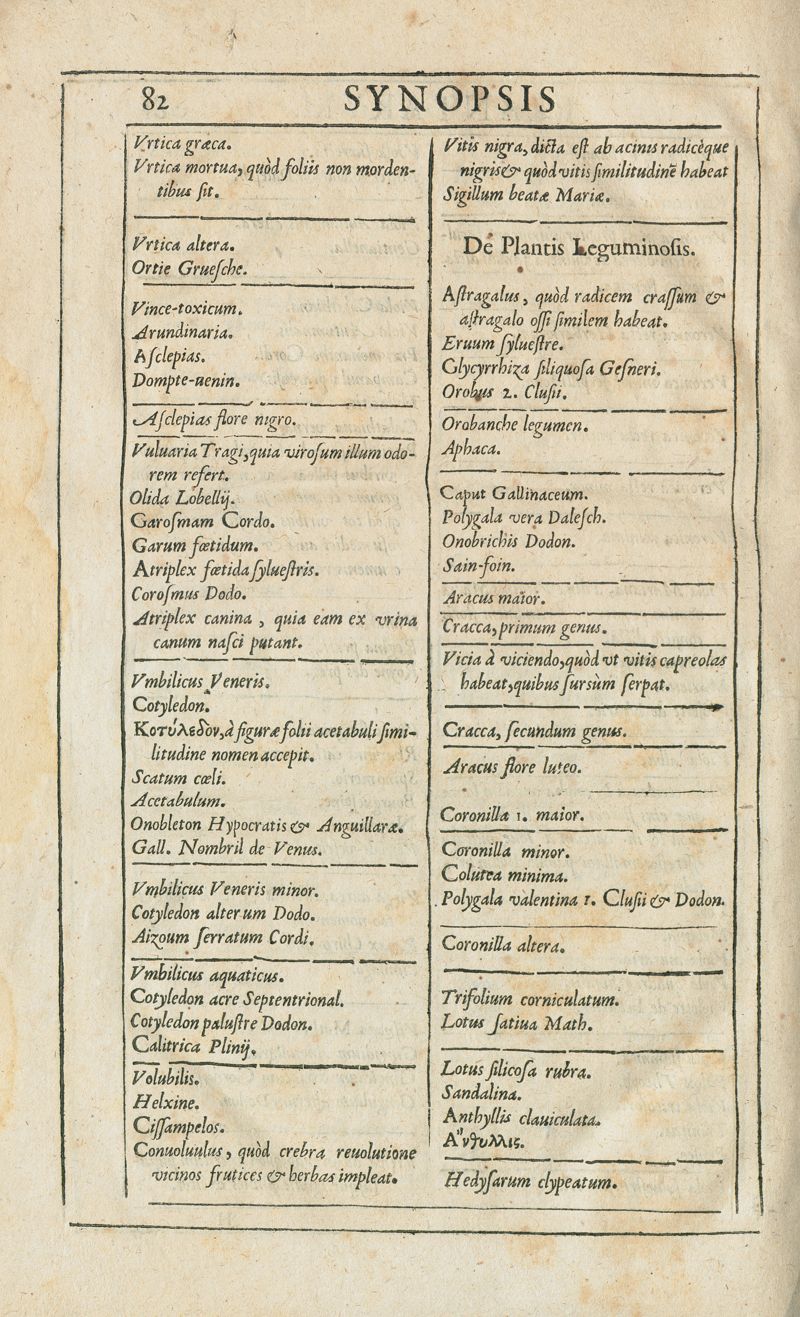 82 SYNOPSIS
Vrtica græca.
Vrtica mortua, quòd foliis non morden-
tibus sit.
Vrtica altera.
Ortie Gruesche.
Vince-toxicum.
Arundinaria.
Asclepias.
Dompte-uenin.
Asclepias flore nigro.
Vuluaria Tragi, quia virosum illum odo-
rem refert.
Olida Lobellij.
Garosmam Cordo.
Garum fœtidum.
Atriplex fœtida syluestris.
Corosmus Dodo.
Atriplex canina, quia eam ex vrina
canum nasci putant.
Vmbilicus Veneris.
Cotyledon.
Κοτύλεδον, à figuræ folii acetabuli simi-
litudine nomen accepit.
Scatum cœli.
Acetabulum.
Onobleton Hypocratis & Anguillaræ.
Gall. Nombril de Venus.
Vmbilicus Veneris minor.
Cotyledon alterum Dodo.
Aizoum serratum Cordi.
Vmbilicus aquaticus.
Cotyledon acre Septentrional.
Cotyledon palustre Dodon.
Calitrica Plinij.
Volubilis.
Helxine.
Cissampelos.
Conuoluulus, quòd crebra reuolutione
vicinos frutices & herbas impleat.
Vitis nigra, dicta est ab acinis radicéque
nigris & quòd vitis similitudinẽ habeat
Sigillum beatæ Mariæ.
De Plantis Leguminosis.
Astragalus, quòd radicem crassum &
astragalo ossi similem habeat.
Eruum syluestre.
Glycyrrhiza siliquosa Gesneri.
Orobus 2. Clusii.
Orobanche legumen.
Aphaca.
Caput Gallinaceum.
Polygala vera Dalesch.
Onobrichis Dodon.
Sain-foin.
Aracus maior.
Cracca, primum genus.
Vicia à viciendo, quòd vt vitis capreolas
habeat, quibus sursùm serpat.
Cracca, secundum genus.
Aracus flore luteo.
Coronilla 1. maior.
Coronilla minor.
Colutea minima.
Polygala valentina 1. Clusii & Dodon.
Coronilla altera.
Trifolium corniculatum.
Lotus satiua Math.
Lotus silicosa rubra.
Sandalina.
Anthyllis clauiculata.
Ἄνθυλλις.
Hedysarum clypeatum.